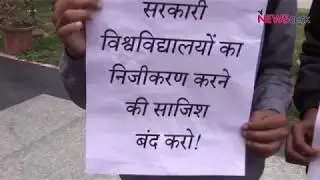 सरकारी
विश्वविद्यालयों का
निजीकरण करने
की साजिश
बंद करो!